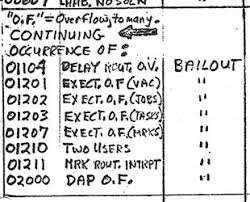 00607 LAMB. NO SOLN
"O.F." = OVERFLOW, TO MANY.
CONTINUING
OCCURRENCE OF:
01104 DELAY ROUT. O.V. BAILOUT
01201 EXECT. O.F (VAC) "
01202 EXECT. O.F. (JOBS) "
01203 EXECT. O.F (TASKS) "
01207 EXECT. O.F (MRKS) "
01210 TWO USERS "
01211 MRK ROUT. INTRPT "
02000 DAP O.F. "